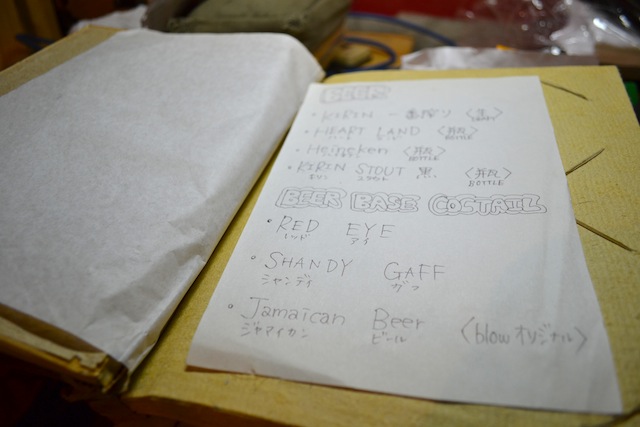 BEER
・KIRIN 一番搾り 〈生〉
DRAFT
・HEART LAND 〈瓶〉
ハート ランド BOTTLE
・Heineken 〈瓶〉
ハイネケン BOTTLE
・KIRIN STOUT 黒 〈瓶〉
キリン スタウト BOTTLE
BEER BASE COSTAIL
・RED EYE
レッド アイ
・SHANDY GAFF
シャンディ ガフ
・Jamaican Beer 〈blow オリジナル〉
ジャマイカン ビール